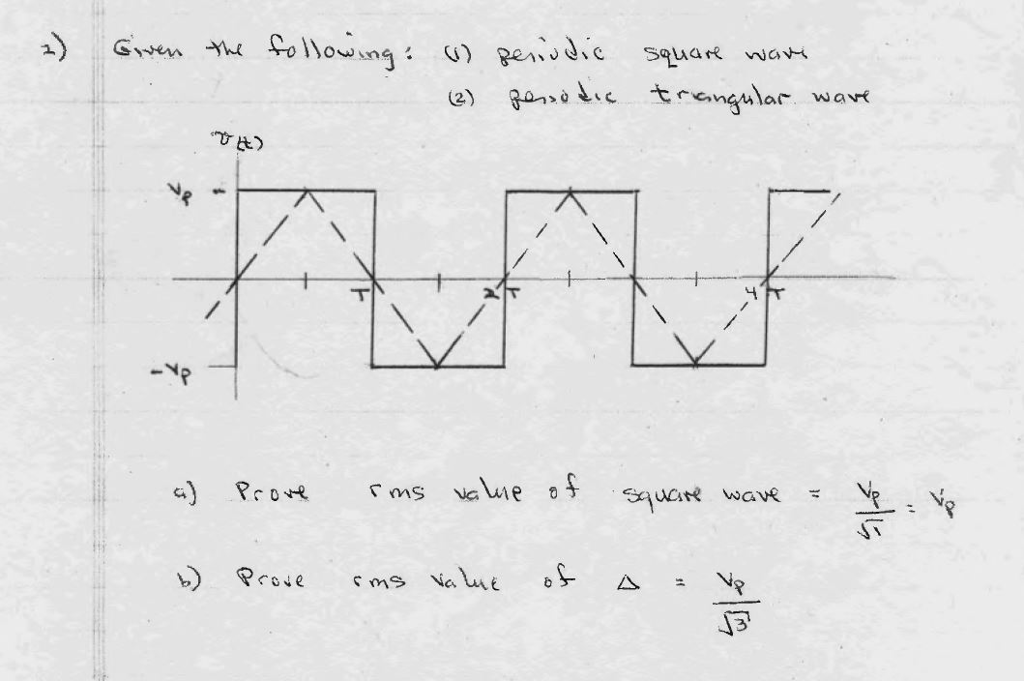 1) Given the following: (1) periodic square wave
(2) periodic triangular wave
v(t)
Vp
T 2T 4T
-Vp
a) Prove rms value of square wave = Vp/√1 = Vp
b) Prove rms value of Δ = Vp/√3